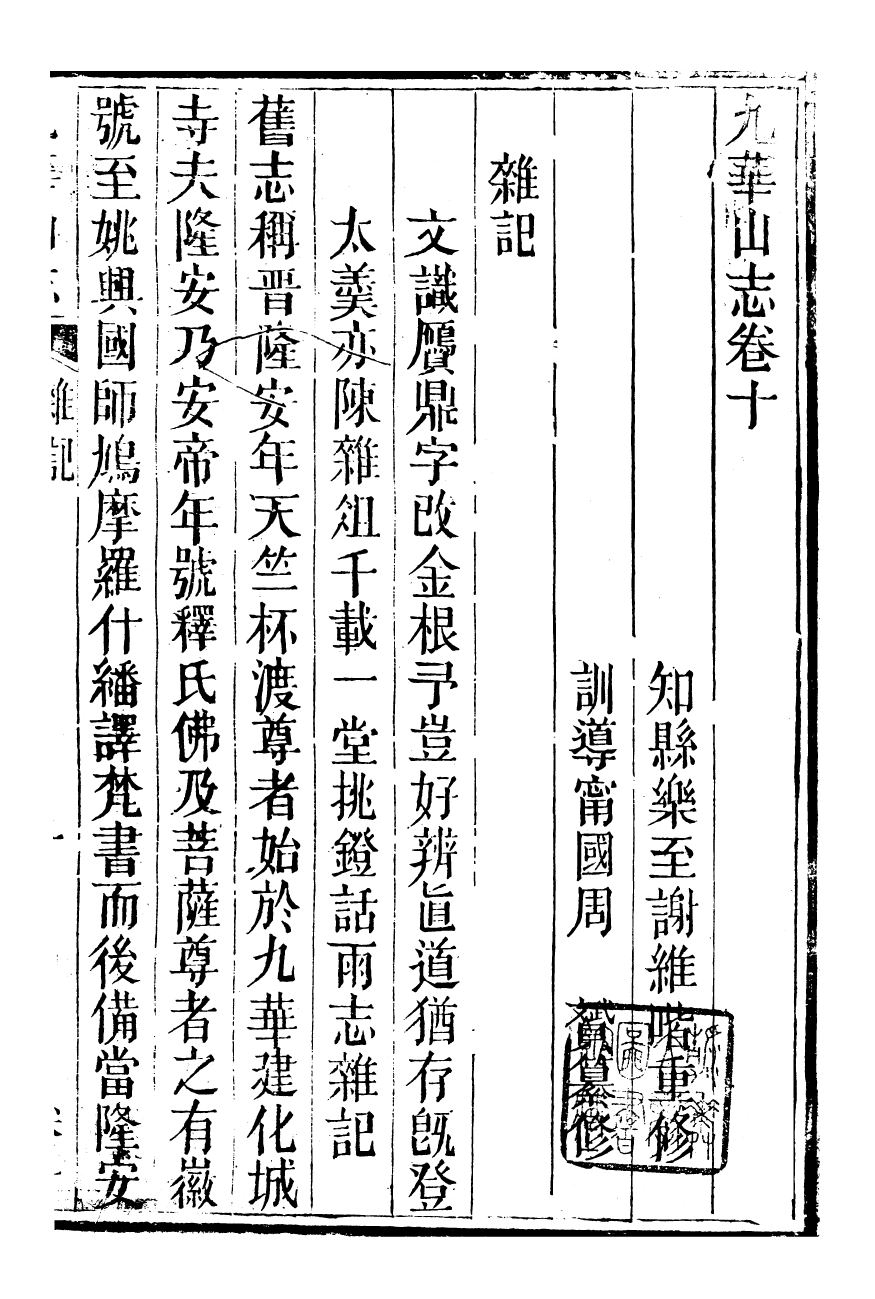 九華山志卷十
知縣樂至謝維喈重修
訓導甯國周　贇纂修
雜記
文識贗鼎字改金根予豈好辨眞道猶存旣登
太羹亦陳雜俎千載一堂挑鐙話雨志雜記
舊志稱晋隆安年天竺杯渡尊者始於九華建化城
寺夫隆安乃安帝年號釋氏佛及菩薩尊者之有徽
號至姚興國師鳩摩羅什繙譯梵書而後備當隆安
雜記